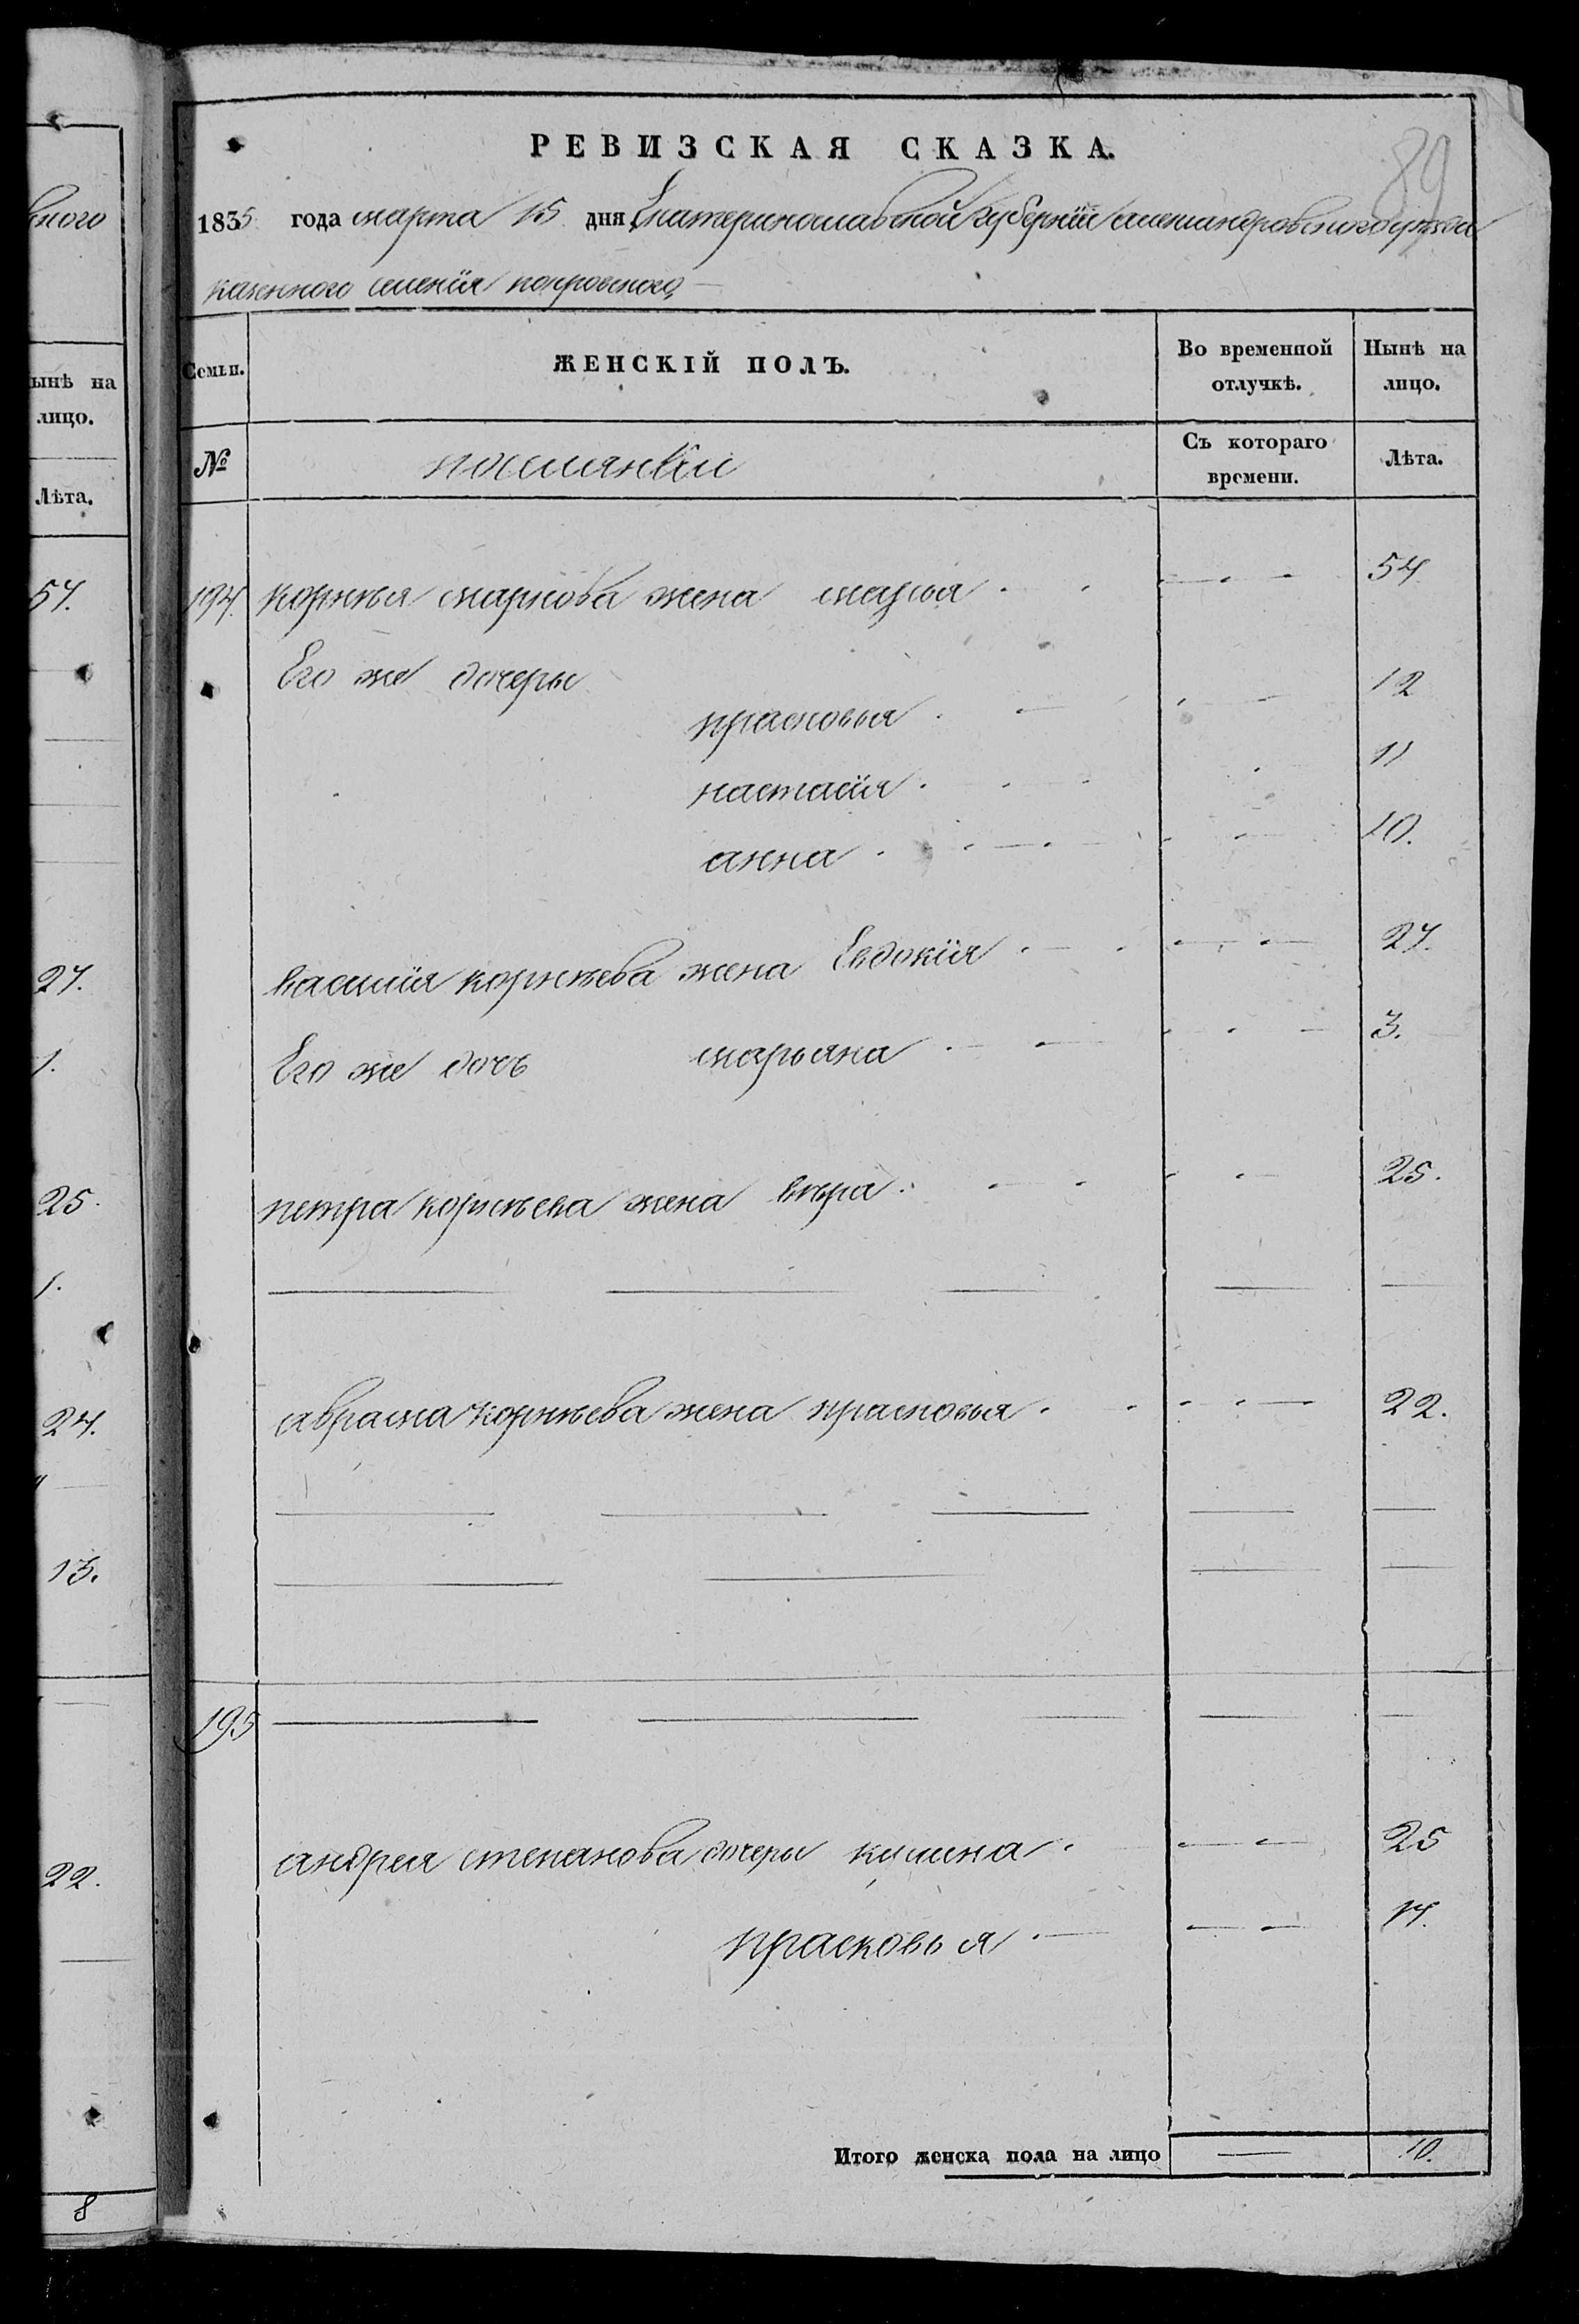 ного
ынѣ на
лицо.
Лѣта.
57.
27.
1.
25.
1.
24.
13.
22.
8
89
РЕВИЗСКАЯ СКАЗКА.
1835 года марта 15 дня, Екатеринославской губернїи александровского уезда
казенного селенїя покровского,
Семьи. ЖЕНСКІЙ ПОЛЪ. Во временной отлучкѣ. Нынѣ на лицо.
№ поселянки Съ котораго времени. Лѣта.
194. корнѣя маркова жена марья 54
Его же дочеры
прасковья 12
настасїя 11
анна 10.
василїя корнѣева жена Евдокїя 27.
Его же дочь марьяна 3.
петра корнѣева жена вѣра 25.
абрама корнѣева жена прасковья 22.
195
андрея степанова дочеры килина 25
прасковья 14.
Итого женска пола на лицо 10.